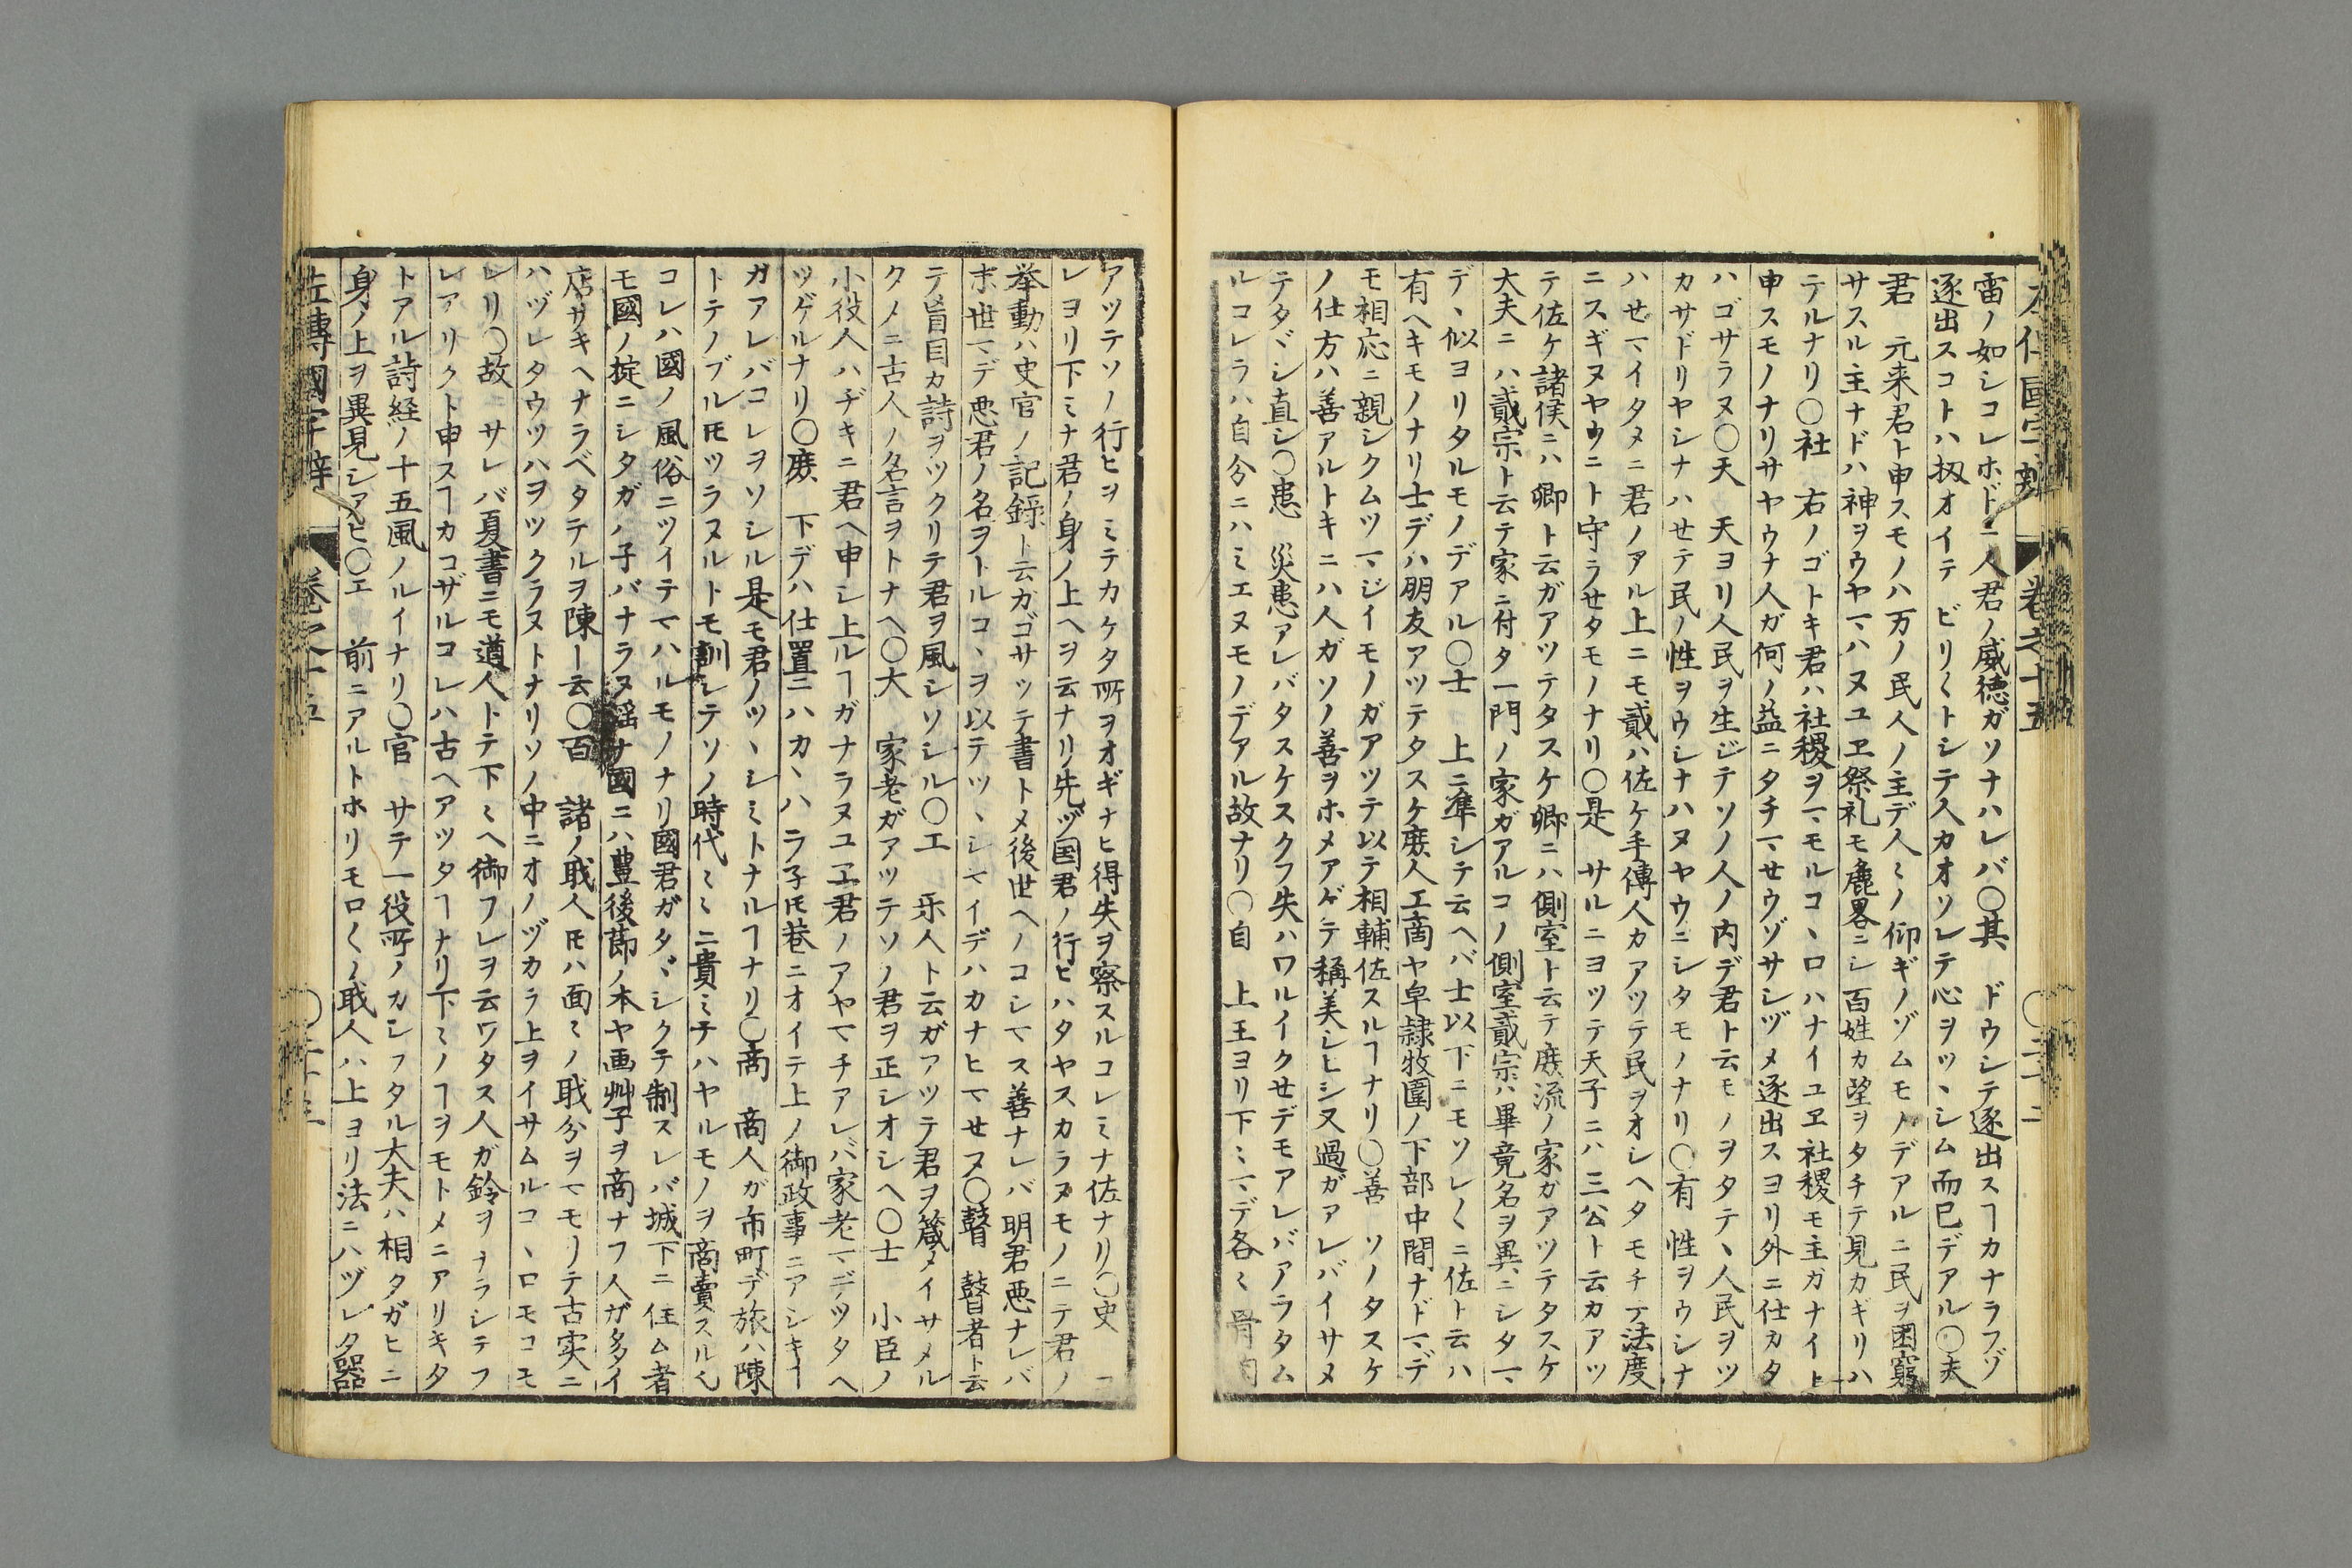 左傳國字辯 巻之十五 ○二十二
雷ノ如シコレホドニ人君ノ威徳ガソナハレバ○其 ドウシテ逐出スヿカナラフゾ
逐出スコトハ扨オイテ ビリ〳〵トシテ入カオソレテ心ヲツヽシム而已デアル○夫
君 元来君ト申スモノハ万ノ民人ノ主デ人〻ノ仰ギノゾムモノデアルニ民ヲ困窮
サスル主ナドハ神ヲウヤマハヌユヱ祭礼モ麁畧ニシ百姓カ望ヲタチテ見カギリハ
テルナリ○社 右ノゴトキ君ハ社稷ヲマモルコヽロハナイユヱ社稷モ主ガナイト
申スモノナリサヤウナ人ガ何ノ益ニタチマせウゾサシヅメ逐出スヨリ外ニ仕カタ
ハゴサラヌ○天 天ヨリ人民ヲ生ジテソノ人ノ内デ君ト云モノヲタテヽ人民ヲツ
カサドリヤシナハせテ民ノ性ヲウシナハヌヤウニシタモノナリ○有 性ヲウシナ
ハせマイタメニ君ノアル上ニモ貳ハ佐ケ手傳人カアツテ民ヲオシヘタモチテ法度
ニスギヌヤウニト守ラせタモノナリ○是 サルニヨツテ天子ニハ三公ト云カアツ
テ佐ケ諸侯ニハ卿ト云ガアツテタスケ卿ニハ側室ト云テ庻流ノ家ガアツテタスケ
大夫ニハ貳宗ト云テ家ニ付タ一門ノ家ガアルコノ側室貳宗ハ畢竟名ヲ異ニシタマ
デヽ似ヨリタルモノデアル○士 上ニ準シテ云ヘバ士以下ニモソレ〳〵ニ佐ト云ハ
有ヘキモノナリ士デハ朋友アツテタスケ庻人工商ヤ皁隷牧圉ノ下部中間ナドマデ
モ相応ニ親シクムツマジイモノガアツテ以テ相輔佐スルヿナリ○善 ソノタスケ
ノ仕方ハ善アルトキニハ人ガソノ善ヲホメアゲテ稱美シヒシ又過ガアレバイサメ
テタヾシ直シ○患 災患アレバタスケスクフ失ハワルイクせデモアレバアラタム
ルコレラハ自分ニハミエヌモノデアル故ナリ○自 上王ヨリ下〻マデ各〻骨肉
アツテソノ行ヒヲミテカケタ所ヲオギナヒ得失ヲ察スルコレミナ佐ナリ○史 コ
レヨリ下ミナ君ノ身ノ上ヘヲ云ナリ先ヅ国君ノ行ヒハタヤスカラヌモノニテ君ノ
挙動ハ史官ノ記録ト云ガゴサツテ書トメ後世ヘノコシマス善ナレバ明君悪ナレバ
末世マデ悪君ノ名ヲトルコヽヲ以テツヽシマイデハカナヒマせヌ○瞽 瞽者ト云
テ盲目カ詩ヲツクリテ君ヲ風シソシル○工 楽人ト云ガアツテ君ヲ箴メイサメル
タメニ古人ノ名言ヲトナヘ○大 家老ガアツテソノ君ヲ正シオシヘ○士 小臣ノ
小役人ハヂキニ君ヘ申シ上ルヿガナラヌユヱ君ノアヤマチアレバ家老マデツタヘ
ツゲルナリ○庻 下デハ仕置ニハカヽハラ子𪜈巷ニオイテ上ノ御政事ニアシキヿ
ガアレバコレヲソシル是モ君ノツヽシミトナルヿナリ○商 商人ガ市町デ旅ハ陳
トテノブル𪜈ツラヌルトモ訓シテソノ時代〻ニ貴ミテハヤルモノヲ商賣スル也
コレハ國ノ風俗ニツイテマハルモノナリ國君ガタヾシクテ制スレバ城下ニ住ム者
モ國ノ掟ニシタガノ子バナラヌ婬ナ國ニハ豊後莭ノ本ヤ画艸子ヲ商ナフ人ガ多イ
店サキヘナラベタテルヲ陳ト云○百 諸ノ職人𪜈ハ面〻ノ職分ヲマモリテ古実ニ
ハヅレタウツハヲツクラヌトナリソノ中ニオノヅカラ上ヲイサムルコヽロモコモ
レリ○故 サレバ夏書ニモ遒人トテ下〻ヘ御フレヲ云ワタス人ガ鈴ヲナラシテフ
レアリクト申スヿカコザルコレハ古ヘアツタヿナリ下〻ノヿヲモトメニアリキタ
トアル詩経ノ十五風ノルイナリ○官 サテ一役所ノカシラタル大夫ハ相タガヒニ
身ノ上ヲ異見シアヒ○工 前ニアルトホリモロ〳〵ノ職人ハ上ヨリ法ニハヅレタ器
左傳國字辯 巻之十五